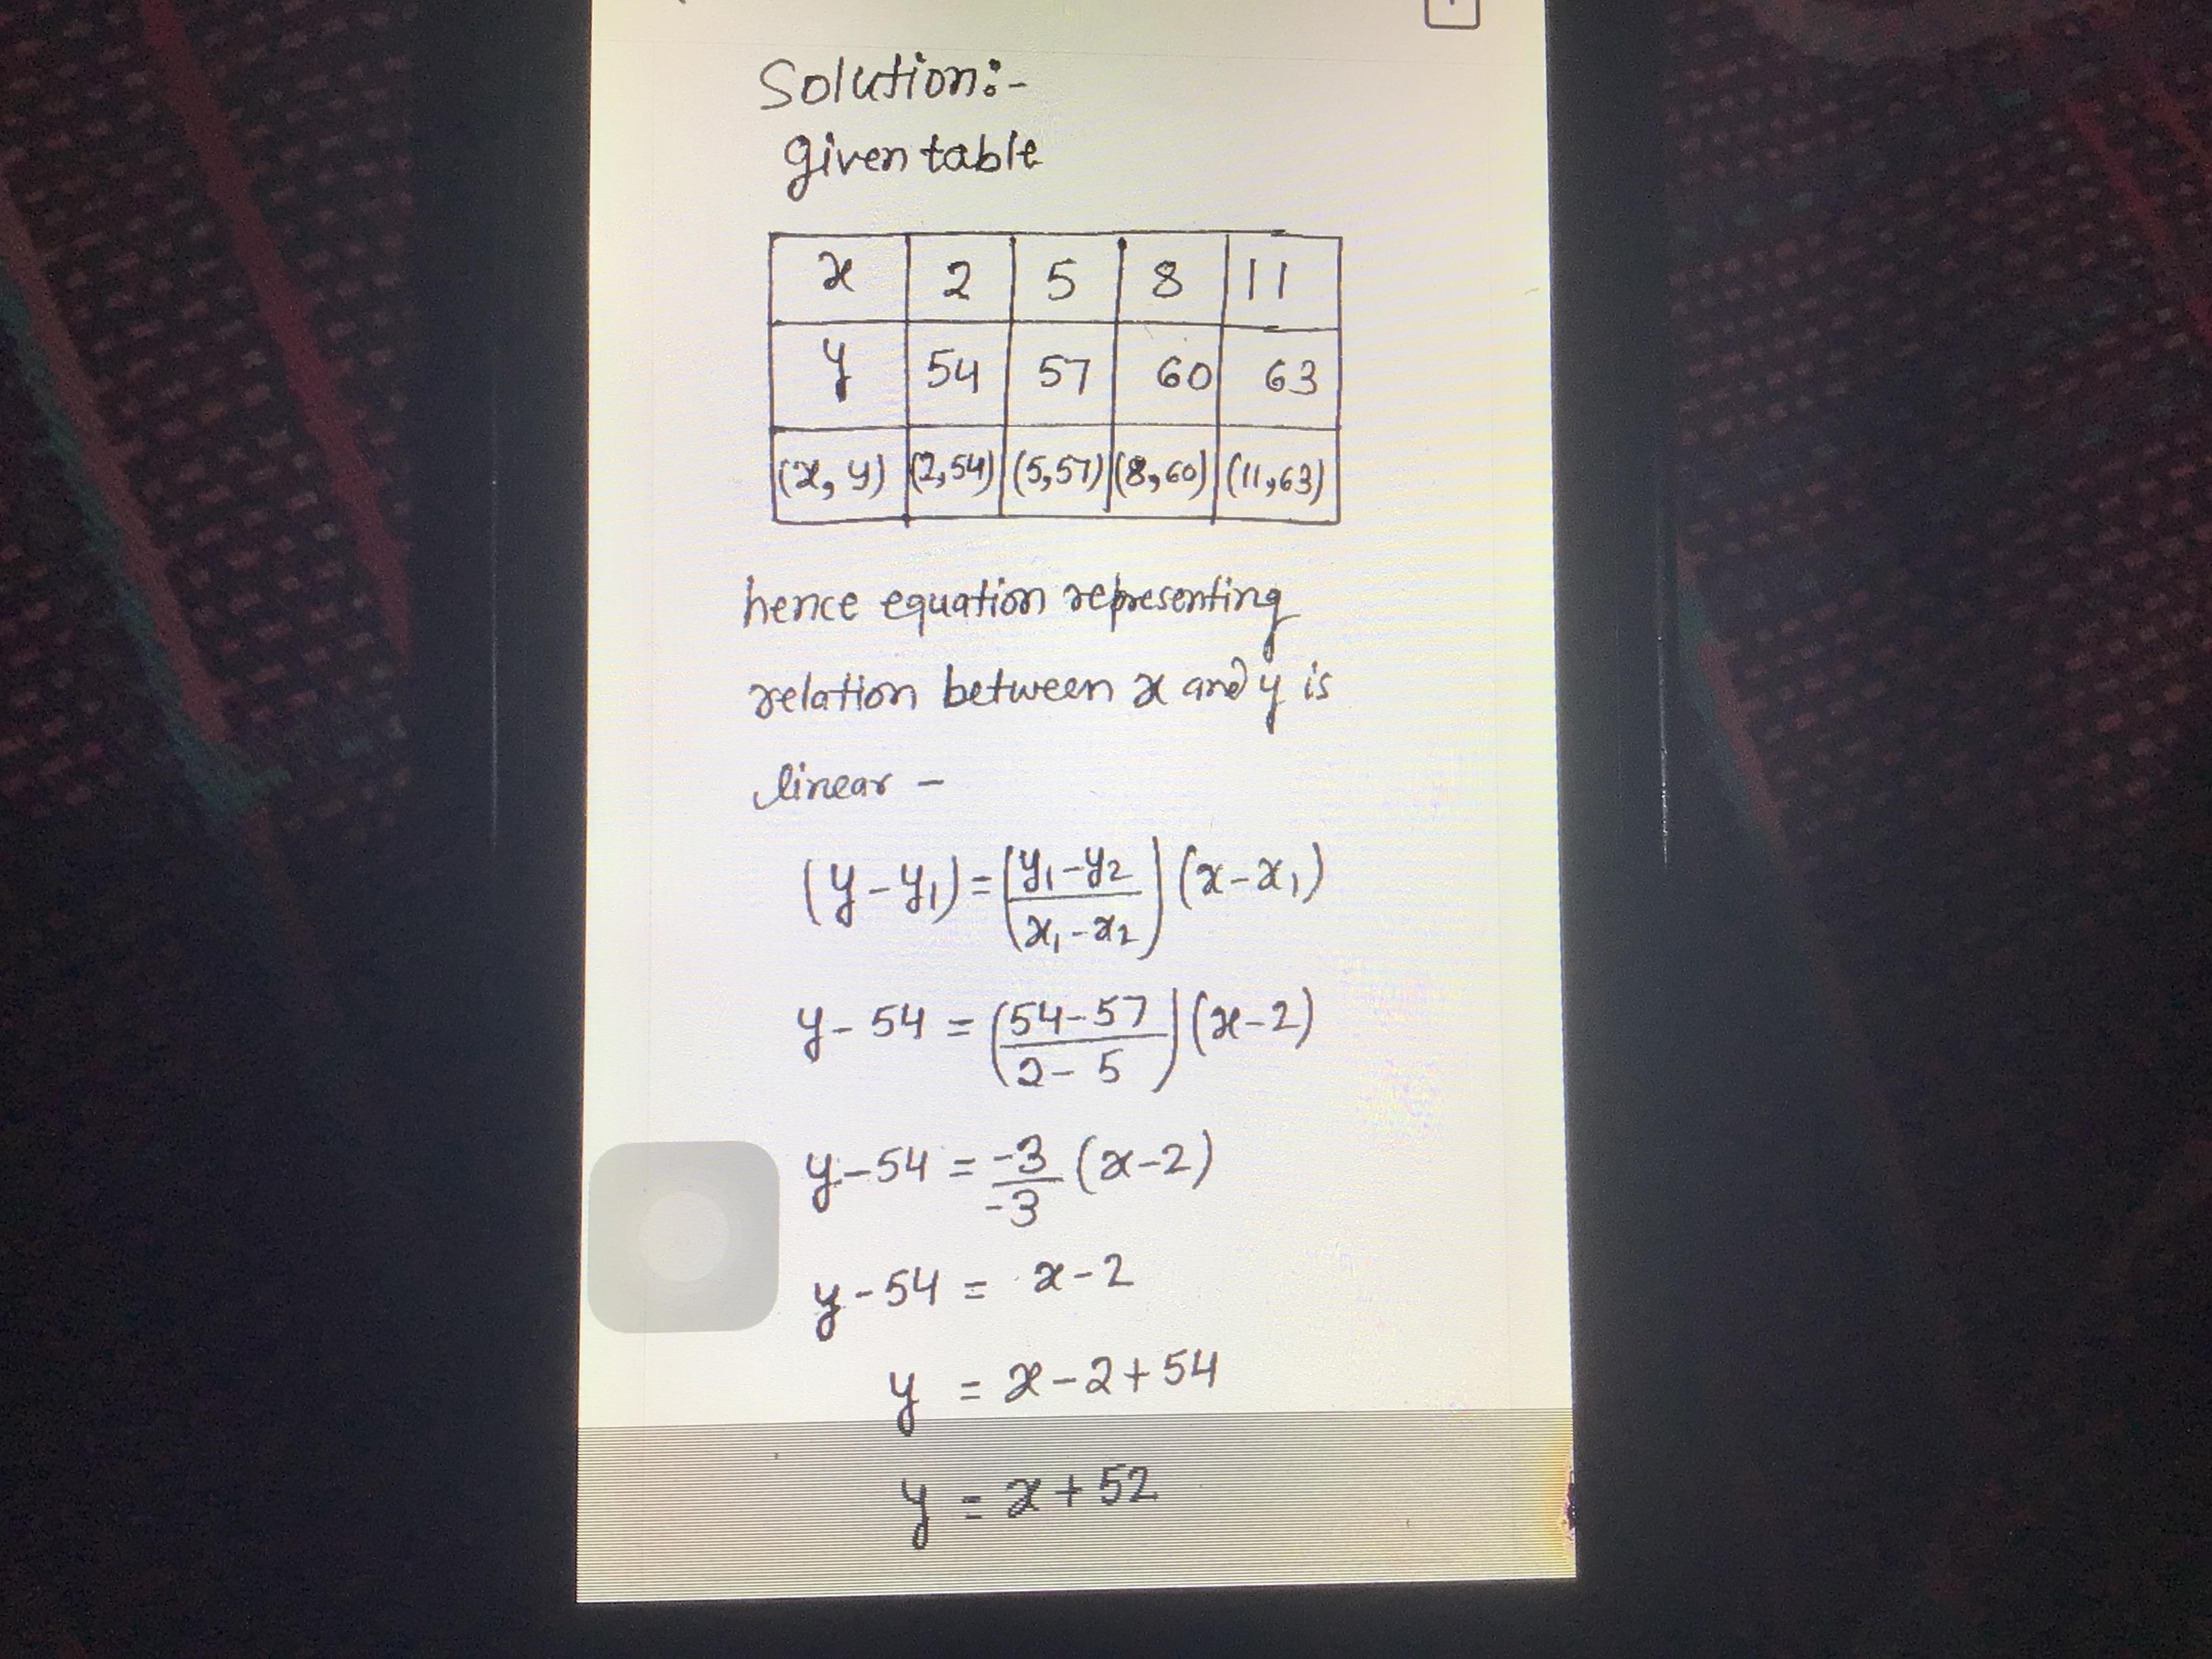 Solution:-
given table
x 2 5 8 11
y 54 57 60 63
(x, y) (2,54) (5,57) (8,60) (11,63)
hence equation representing
relation between x and y is
linear -
(y-y₁) = (y₁-y₂ / x₁-x₂) (x-x₁)
y - 54 = (54-57 / 2-5) (x-2)
y-54 = -3/-3 (x-2)
y-54 = x-2
y = x-2+54
y = x+52